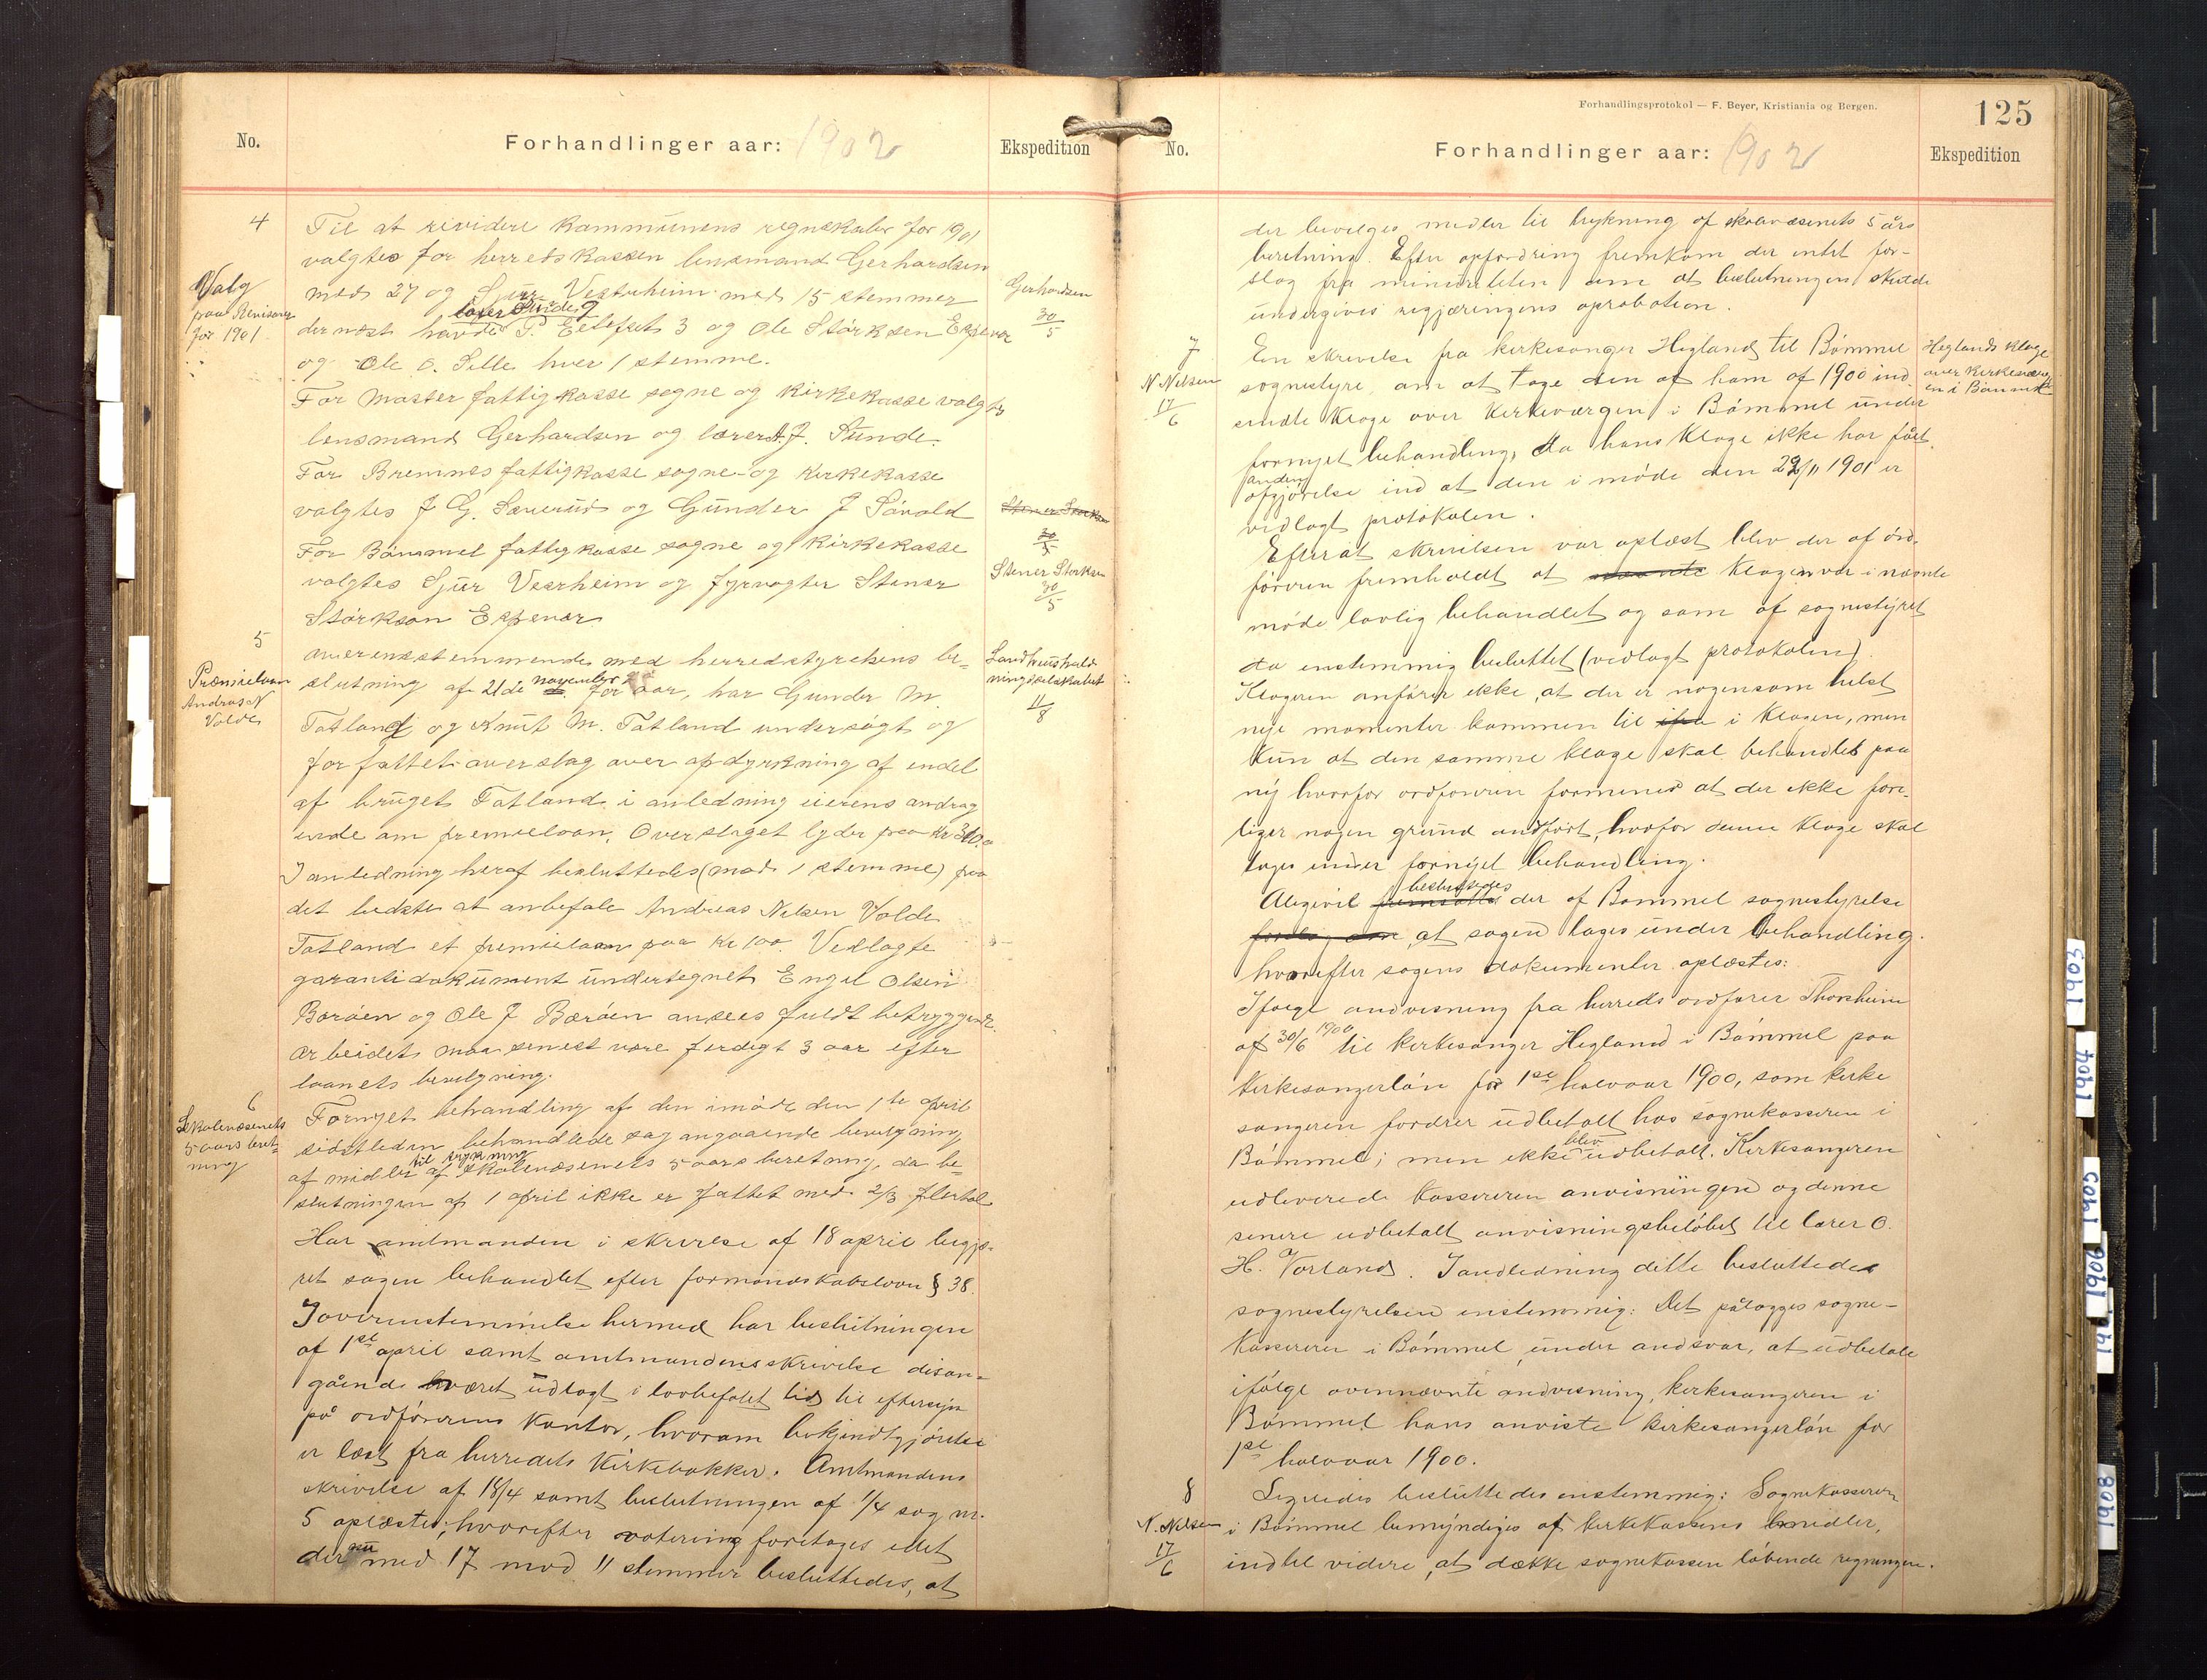 No.
Forhandlinger aar: 1902
Ekspedition
4
Valg
paa Revisorer
for 1901.
Til at rividere kommunens regnskaber for 1901
valgtes for herredskassen lensmand Gerhardsen
med 27 og Sjur Vestreheim med 15 stemmer
dernæst havde P. 3 og Ole Störksen Espevær
og Ole O. Lille hver 1 stemme.
For Moster fattigkasse sogne og kirkekasse valgtes
lensmand Gerhardsen og lærer A. J. Sunde.
For Bremnes fattigkasse sogne- og kirkekasse
valgtes J G. og Gunder J Såvold
For Bömmel fattigkasse sogne og kirkekasse
valgtes Sjur Vesrheim og fyrvogter Stener
Störkson Espevær
Gerhardsen
30/5
Stener Störksen
30/5
Stener Storksen
30/5
5
Præmielaan
Andreas N
Volde
overensstemmende med herredstyrelsens be-
slutning af 21de november f for aar, har Gunder M.
Tatland og Knut M. Tatland undersögt og
forfattet overslag over opdyrkning af endel
af bruget Tatland i anledning eierens andrag
ende om premielaan. Overslaget lyder paa kr 300.
I anledning heraf besluttedes (mod 1 stemme) paa
det bedste at anbefale Andreas Nilsen Volde
Tatland et premielaan paa kr 100. Vedlagte
garantidokument undertegnet Engel Olsen
Böröen og Ole J Bæröen ansees fuldt betryggende.
arbeidet maa senest være ferdigt 3 aar efter
laanets bevilgning.
Landhusholdningsselskabet
11/8
6
Skolevæsenets
5 aars beret-
ning
Fornyet behandling af den imöde den 1te april
sidstleden behandlede sag angaaende bevilgning
af midler til trykning af skolevæsenets 5 aars beretning, da be-
slutningen af 1 april ikke er fattet med 2/3 flertal
Har amtmanden i skrivelse af 18 april begjæ-
ret sagen behandlet efter formandskabsloven § 38.
I overenstemmelse hermed har beslutningen
af 1ste april samt amtmandens skrivelse disan-
gående været udlagt i lovbefalet tid til eftersyn
på ordförerens kontor, hvorom bekjendtgjörelse
er læst fra herredets kirkebakker. Amtmandens
skrivelse af 18/4 samt beslutningen af 1/4 sag nr.
5 oplæstes; hvorefter votering foretages idet
der nu med 17 mod 11 stemmer besluttedes, at
Forhandlingsprotokol — F. Beyer, Kristiania og Bergen.
125
No.
Forhandlinger aar: 1902
Ekspedition
der bevilges midler til trykning af skolevæsenets 5 års
beretning. Efter opfordring fremkom der intet for-
slag fra minoriteten om at beslutningen skulde
undergives regjæringens aprobation.
7
N Nilsen
17/6
En skrivelse fra kirkesanger Hegland til Bömmel
sognestyre, om at tage den af ham af 1900 ind
sendte klage over kirkeværgen i Bömmel under
fornyet behandling, da hans klage ikke har fået
anden afgjörelse ind at den i möde den 29/11 1901 er
vedlagt protokolen.
Heglands klage
over kirkeværg
en i Bömmel
Efterat skrivelsen var oplæst blev der af ord-
föreren fremholdt at klagen var i nævnte
möde lovlig behandlet og som af sognestyret
da enstemmig besluttet (vedlagt protokolen).
Klageren anförer ikke, at der er nogensom helst
nye momenter kommen til ifra i klagen, men
kun at den samme klage skal behandles paa
ny hvorfor ordföreren formener at der ikke fore-
liger nogen grund andfört, hvorfor denne klage skal
tages under fornyet behandling.
Alegivil fremsattes besluttedes der af Bommel sognestyrelse
forslag om at sagen tages under behandling.
hvorefter sagens dokumenter oplæstes:
Ifölge andvisning fra herreds ordförer Thorsheim
af 30/6 1900 til kirkesanger Hegland i Bömmel paa
kirkesangerlön for 1ste halvaar 1900, som kirke
sangeren fordrer udbetalt hos sognekassereren i
Bömmel; men ikke blev udbetalt. Kirkesangeren
udleverede kassereren anvisningen og denne
senere udbetalt anvisningsbelöbet til lærer O.
H. Vorland. I andledning dette besluttedes
sognestyrelsen enstemmig: Det pålægges sogne-
kassereren i Bömmel, under andsvar, at udbetale
ifölge ovennævnte andvisning, kirkesangeren i
Bömmel hans anviste kirkesangerlön for
1ste halvaar 1900.
8
N. Nilsen
17/6
Ligeledes besluttedes enstemmig: Sognekassereren
i Bömmel bemyndiges af kirkekassens midler,
indtil videre, at dække sognekassen löbende regninger.
1903
1904
1905
1906
1908